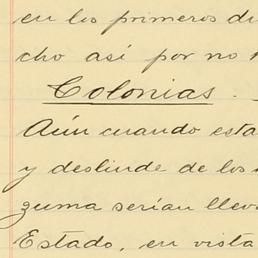 en los primeros di
cho así por no
Colonias.
Aún cuando esta
y deslinde de los
zuma serían lleva
Estado, en vista